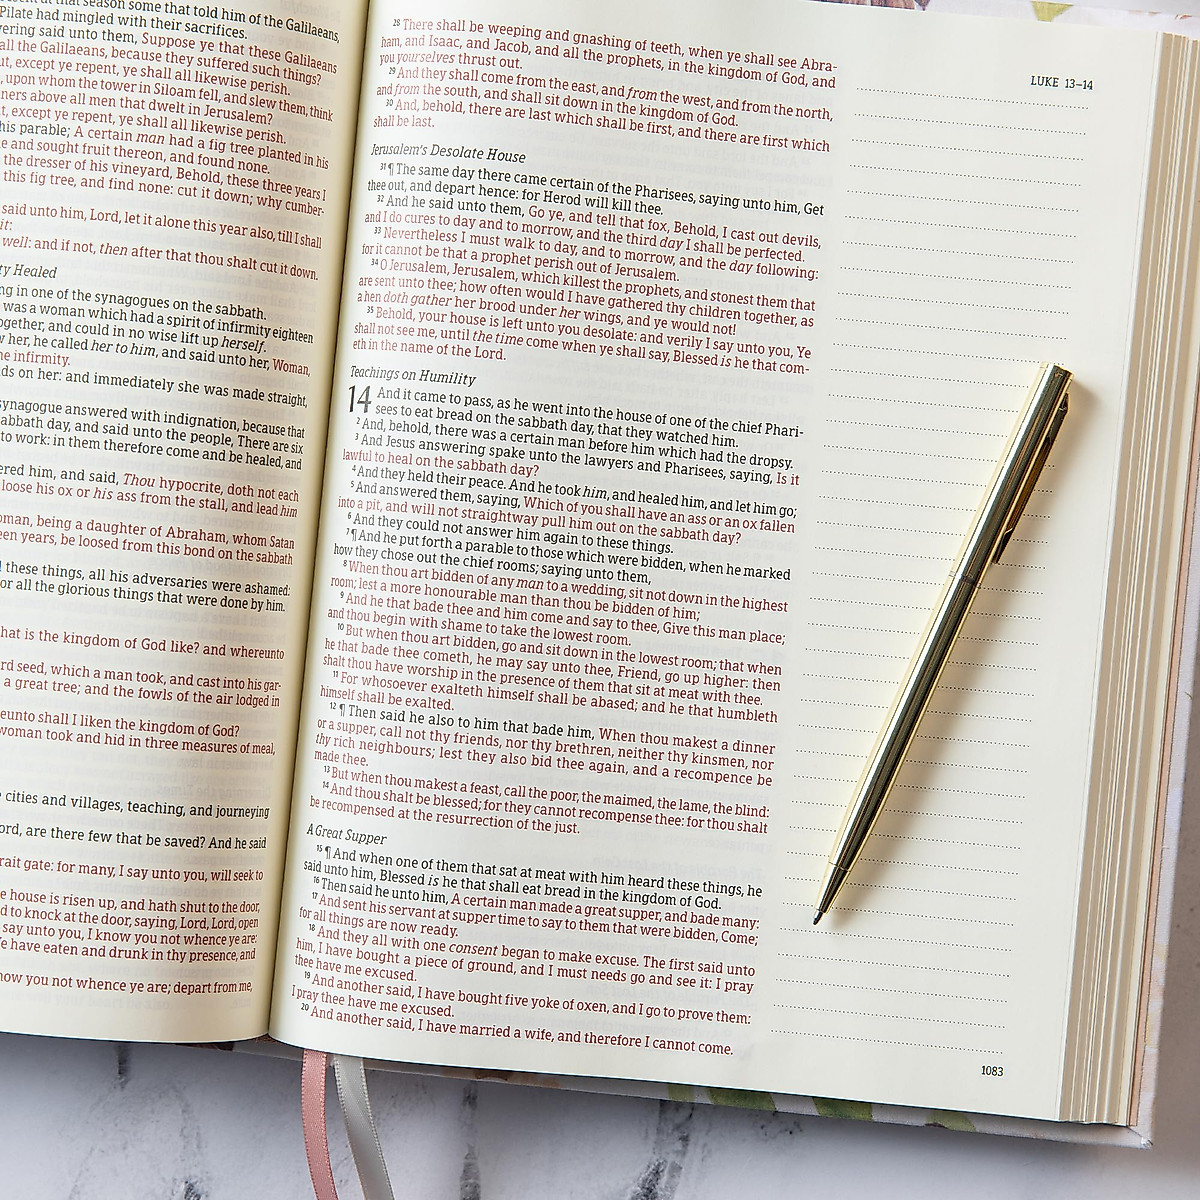 esent at that season some that told him of the Galilaeans,
Pilate had mingled with their sacrifices.
vering said unto them, Suppose ye that these Galilaeans
all the Galilaeans, because they suffered such things?
ut, except ye repent, ye shall all likewise perish.
, upon whom the tower in Siloam fell, and slew them, think
ners above all men that dwelt in Jerusalem?
t, except ye repent, ye shall all likewise perish.
his parable; A certain man had a fig tree planted in his
e and sought fruit thereon, and found none.
the dresser of his vineyard, Behold, these three years I
this fig tree, and find none: cut it down; why cumber-
said unto him, Lord, let it alone this year also, till I shall
it:
well: and if not, then after that thou shalt cut it down.
ty Healed
ng in one of the synagogues on the sabbath.
was a woman which had a spirit of infirmity eighteen
ogether, and could in no wise lift up herself.
w her, he called her to him, and said unto her, Woman,
ne infirmity.
ds on her: and immediately she was made straight,
synagogue answered with indignation, because that
abbath day, and said unto the people, There are six
to work: in them therefore come and be healed, and
ered him, and said, Thou hypocrite, doth not each
loose his ox or his ass from the stall, and lead him
oman, being a daughter of Abraham, whom Satan
een years, be loosed from this bond on the sabbath
these things, all his adversaries were ashamed:
or all the glorious things that were done by him.
hat is the kingdom of God like? and whereunto
rd seed, which a man took, and cast into his gar-
a great tree; and the fowls of the air lodged in
eunto shall I liken the kingdom of God?
woman took and hid in three measures of meal,
cities and villages, teaching, and journeying
ord, are there few that be saved? And he said
rait gate: for many, I say unto you, will seek to
e house is risen up, and hath shut to the door,
d to knock at the door, saying, Lord, Lord, open
say unto you, I know you not whence ye are:
e have eaten and drunk in thy presence, and
now you not whence ye are; depart from me,
28 There shall be weeping and gnashing of teeth, when ye shall see Abra-
ham, and Isaac, and Jacob, and all the prophets, in the kingdom of God, and
you yourselves thrust out.
29 And they shall come from the east, and from the west, and from the north,
and from the south, and shall sit down in the kingdom of God.
30 And, behold, there are last which shall be first, and there are first which
shall be last.
Jerusalem's Desolate House
31 ¶ The same day there came certain of the Pharisees, saying unto him, Get
thee out, and depart hence: for Herod will kill thee.
32 And he said unto them, Go ye, and tell that fox, Behold, I cast out devils,
and I do cures to day and to morrow, and the third day I shall be perfected.
33 Nevertheless I must walk to day, and to morrow, and the day following:
for it cannot be that a prophet perish out of Jerusalem.
34 O Jerusalem, Jerusalem, which killest the prophets, and stonest them that
are sent unto thee; how often would I have gathered thy children together, as
a hen doth gather her brood under her wings, and ye would not!
35 Behold, your house is left unto you desolate: and verily I say unto you, Ye
shall not see me, until the time come when ye shall say, Blessed is he that com-
eth in the name of the Lord.
Teachings on Humility
14 And it came to pass, as he went into the house of one of the chief Phari-
sees to eat bread on the sabbath day, that they watched him.
2 And, behold, there was a certain man before him which had the dropsy.
3 And Jesus answering spake unto the lawyers and Pharisees, saying, Is it
lawful to heal on the sabbath day?
4 And they held their peace. And he took him, and healed him, and let him go;
5 And answered them, saying, Which of you shall have an ass or an ox fallen
into a pit, and will not straightway pull him out on the sabbath day?
6 And they could not answer him again to these things.
7 ¶ And he put forth a parable to those which were bidden, when he marked
how they chose out the chief rooms; saying unto them,
8 When thou art bidden of any man to a wedding, sit not down in the highest
room; lest a more honourable man than thou be bidden of him;
9 And he that bade thee and him come and say to thee, Give this man place;
and thou begin with shame to take the lowest room.
10 But when thou art bidden, go and sit down in the lowest room; that when
he that bade thee cometh, he may say unto thee, Friend, go up higher: then
shalt thou have worship in the presence of them that sit at meat with thee.
11 For whosoever exalteth himself shall be abased; and he that humbleth
himself shall be exalted.
12 ¶ Then said he also to him that bade him, When thou makest a dinner
or a supper, call not thy friends, nor thy brethren, neither thy kinsmen, nor
thy rich neighbours; lest they also bid thee again, and a recompence be
made thee.
13 But when thou makest a feast, call the poor, the maimed, the lame, the blind:
14 And thou shalt be blessed; for they cannot recompense thee: for thou shalt
be recompensed at the resurrection of the just.
A Great Supper
15 ¶ And when one of them that sat at meat with him heard these things, he
said unto him, Blessed is he that shall eat bread in the kingdom of God.
16 Then said he unto him, A certain man made a great supper, and bade many:
17 And sent his servant at supper time to say to them that were bidden, Come;
for all things are now ready.
18 And they all with one consent began to make excuse. The first said unto
him, I have bought a piece of ground, and I must needs go and see it: I pray
thee have me excused.
19 And another said, I have bought five yoke of oxen, and I go to prove them:
I pray thee have me excused.
20 And another said, I have married a wife, and therefore I cannot come.
LUKE 13–14
1083